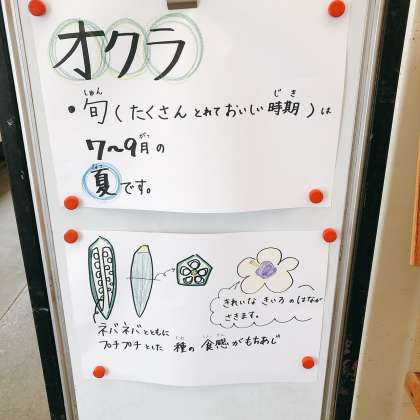 オクラ
・旬(たくさん とれて おいしい 時期)は
7〜9月の
夏です。
きれいな きいろ のはなが
さきます。
ネバネバとともに
プチプチとした 種の 食感 がもちあじ